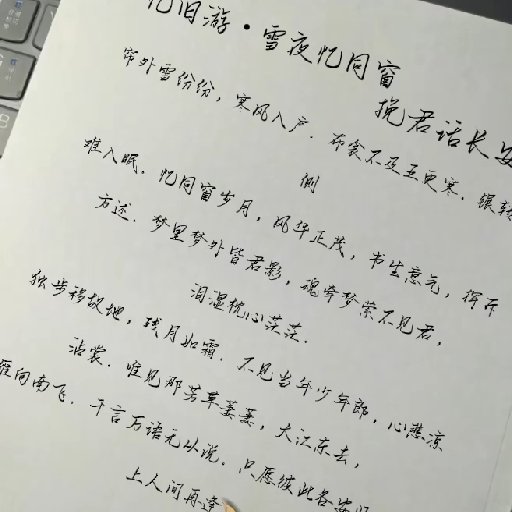 忆旧游·雪夜忆同窗
挽君话长安
帘外雪份份，寒风入户．布衾不及五更寒．辗转
侧
难入眠．忆同窗岁月，风华正茂，书生意元，挥斥
方遒．梦里梦外皆君影，魂牵梦萦不见君，
泪湿枕心茫茫．
独步移故地，残月如霜．不见当年少年郎，心悲凉
沾裳．唯见那芳草萋萋，大江东去，
雁向南飞．千言万语元以说．只愿彼此各安
上人间再逢